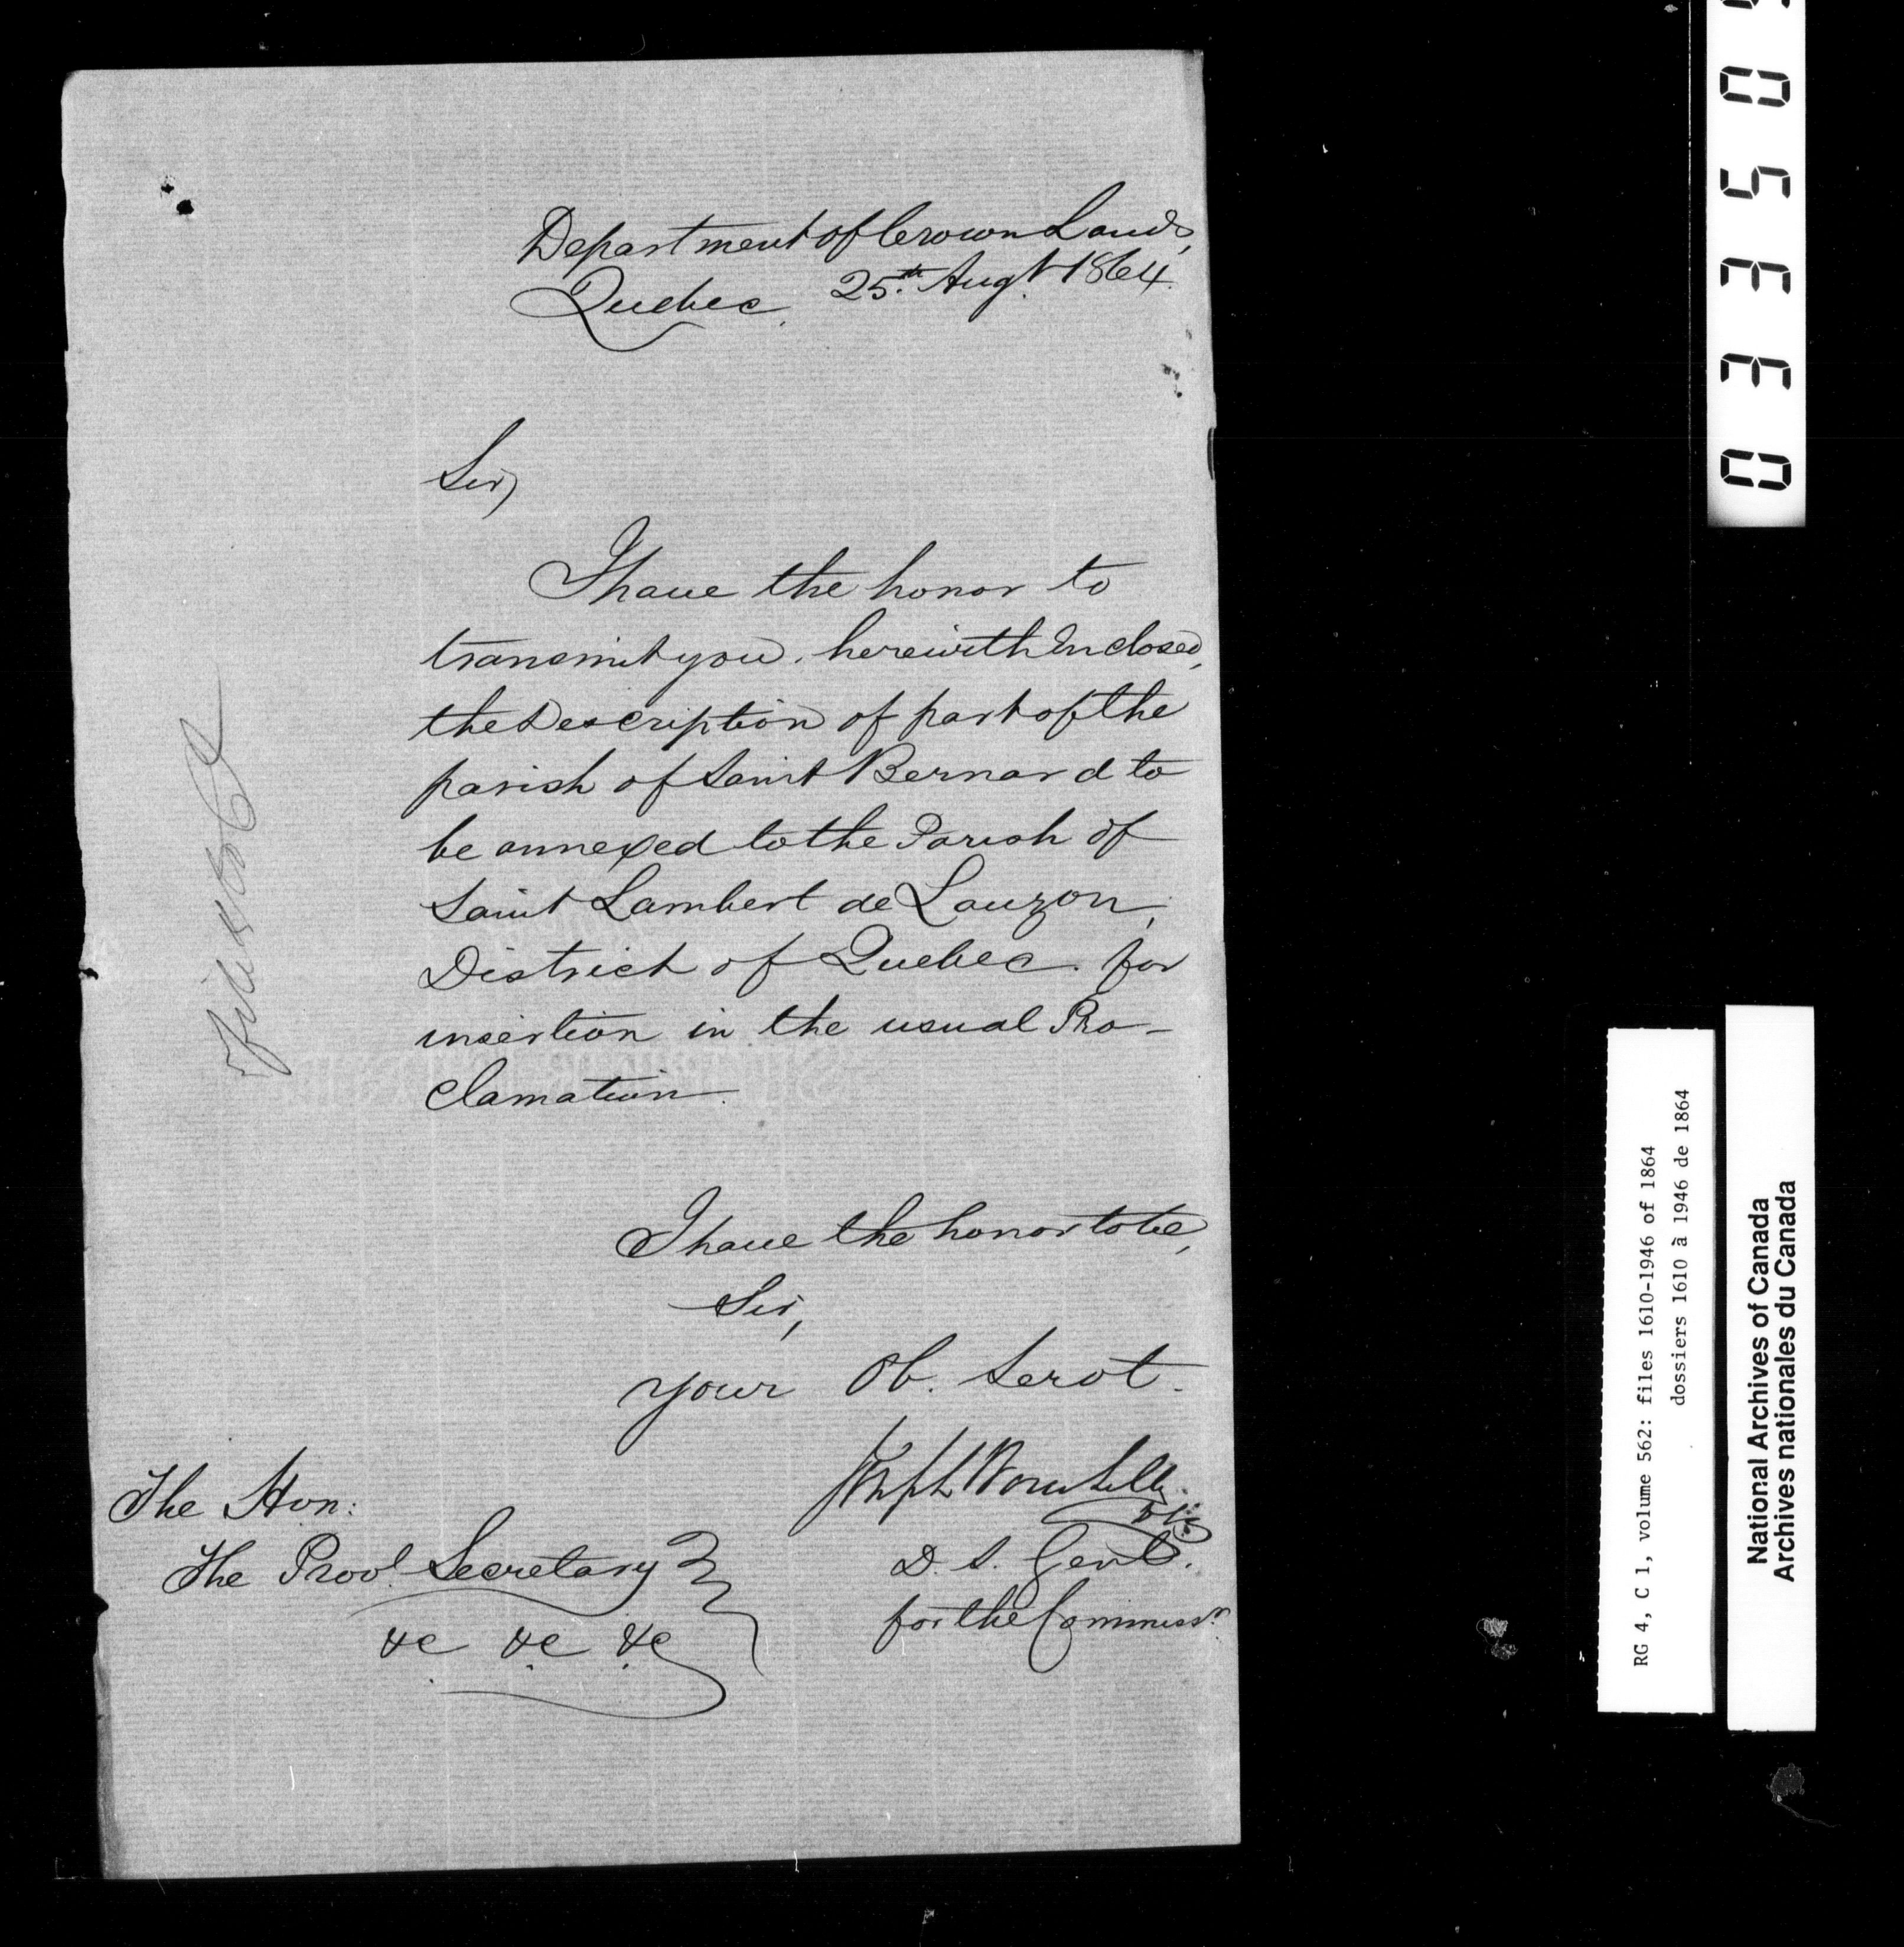 Department of Crown Lands,
Quebec, 25.th Augt. 1864.
Sir,
I have the honor to
transmit you, herewith Inclosed,
the Description of part of the
parish of Saint Bernard to
be annexed to the Parish of
Saint Lambert de Lauzon,
District of Quebec. for
insertion in the usual Pro-
clamation.
I have the honor to be,
Sir,
your Ob. Servt.
Joseph Bouchette
D. S. Genl.
for the Commissr.
The Hon:
The Provl. Secretary
&c &c &c
0 3 3 5 0
RG 4, C 1, volume 562: files 1610-1946 of 1864
dossiers 1610 à 1946 de 1864
National Archives of Canada
Archives nationales du Canada